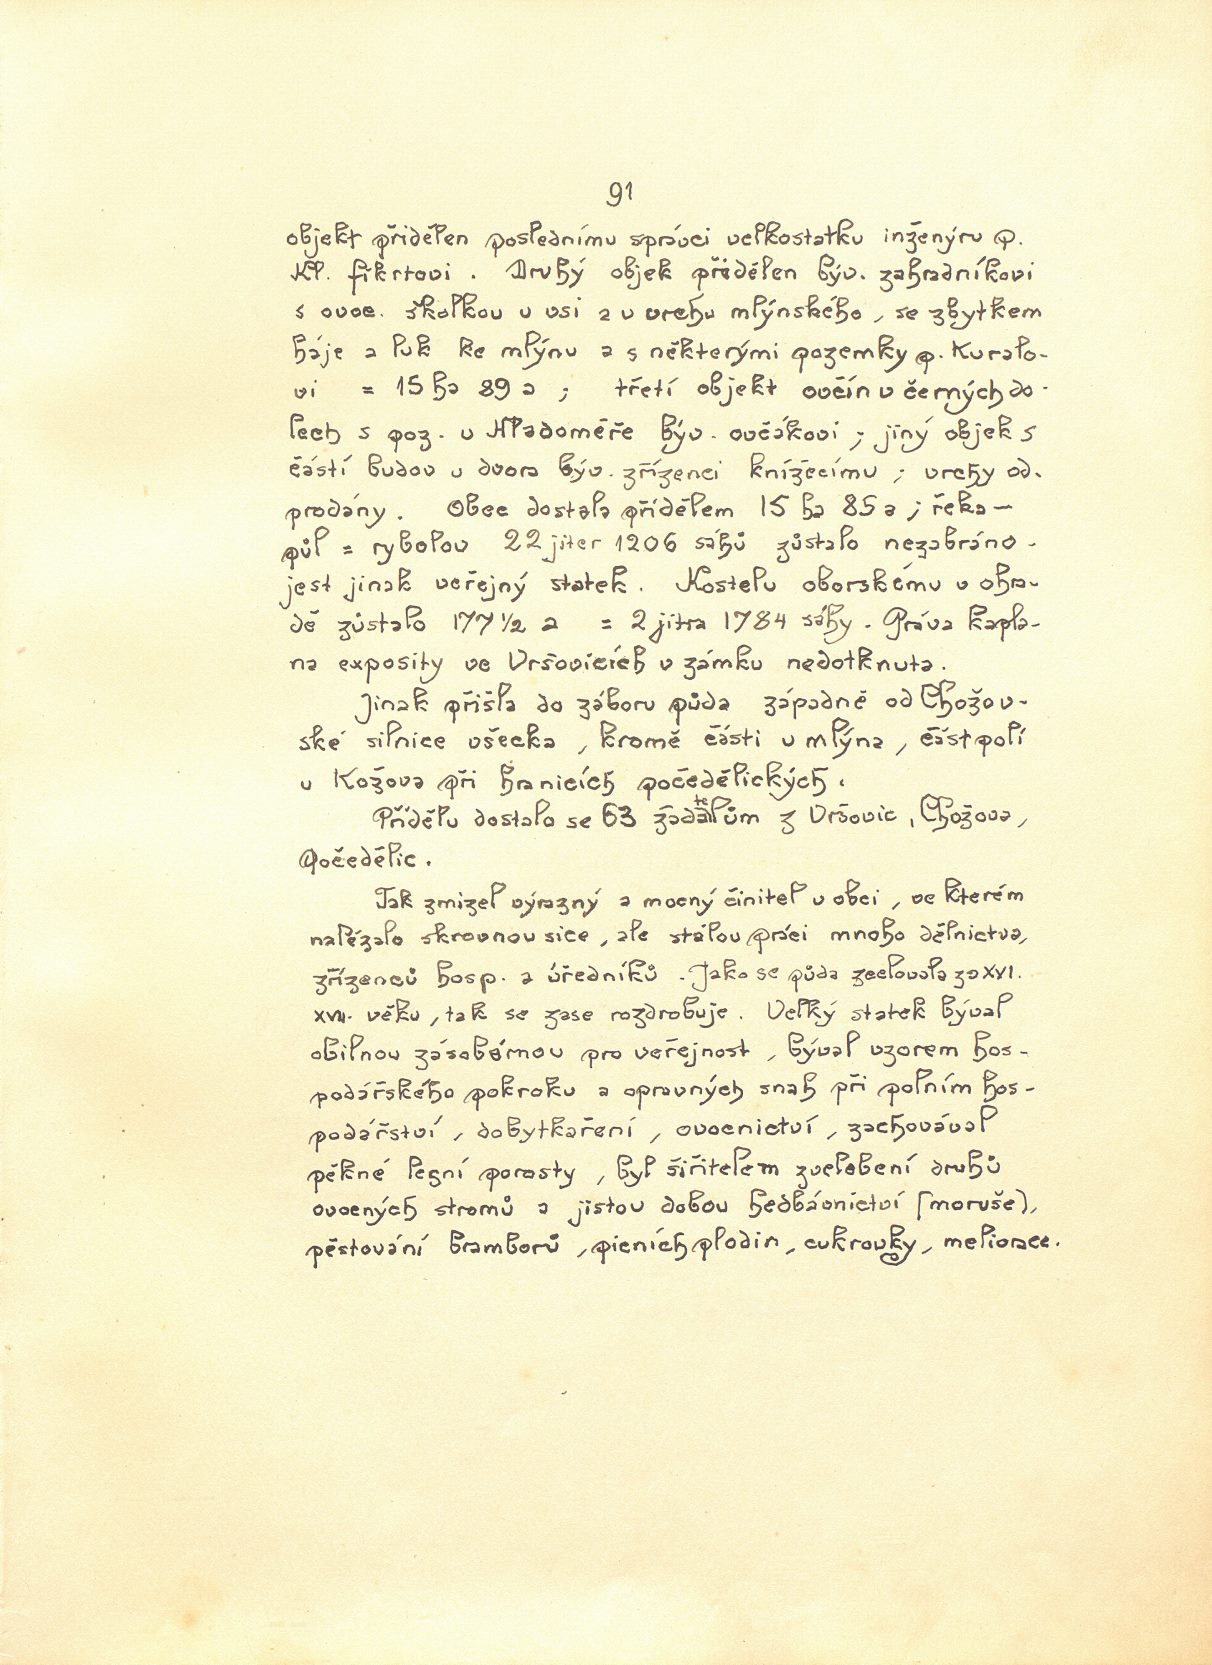 91
objekt přidělen poslednímu správci velkostatku inženýru p.
Kl. Fikrtovi. Druhý objek přidělen býv. zahradníkovi
s ovoc. školkou u vsi a u vrchu mlýnského, se zbytkem
háje a luk ke mlýnu a s některými pozemky p. Kuralo-
vi = 15 ha 89 a ; třetí objekt ovčín v černých do-
lech s poz. u Hladoměře býv. ovčákovi ; jiný objek s
částí budov u dvora býv. zřízenci knížecímu ; vrchy od-
prodány. Obec dostala přídělem 15 ha 85 a ; řeka –
půl = rybolov 22 jiter 1206 sáhů zůstalo nezabráno -
jest jinak veřejný statek. Kostelu oborskému v ohra-
dě zůstalo 177 1/2 a = 2 jitra 1784 sáhy. Práva kapla-
na exposity ve Vršovicích v zámku nedotknuta.
Jinak přišla do záboru půda západně od Chožov-
ské silnice všecka, kromě části u mlýna, část polí
u Kožova při hranicích počedělických.
Přídělu dostalo se 63 žadatelům z Vršovic, Chožova,
Počedělic.
Tak zmizel výrazný a mocný činitel v obci, ve kterém
nalézalo skrovnou sice, ale stálou práci mnoho dělnictva,
zřízenců hosp. a úředníků. Jako se půda zcelovala za XVI.
XVII. věku, tak se zase rozdrobuje. Velký statek býval
obilnou zásobárnou pro veřejnost, býval vzorem hos-
podářského pokroku a opravných snah při polním hos-
podářství, dobytkaření, ovocnictví, zachovával
pěkné lesní porosty, byl šiřitelem zvelebení druhů
ovocných stromů a jistou dobou hedbávnictví (moruše),
pěstování bramborů, pícních plodin, cukrovky, meliorace.